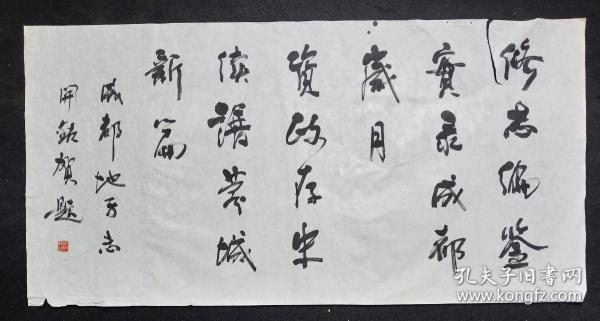 修志编鉴
实录成都
岁月
资政存史
续谱蓉城
新篇
成都地方志
開鉊贺题
孔夫子旧书网
www.kongfz.com